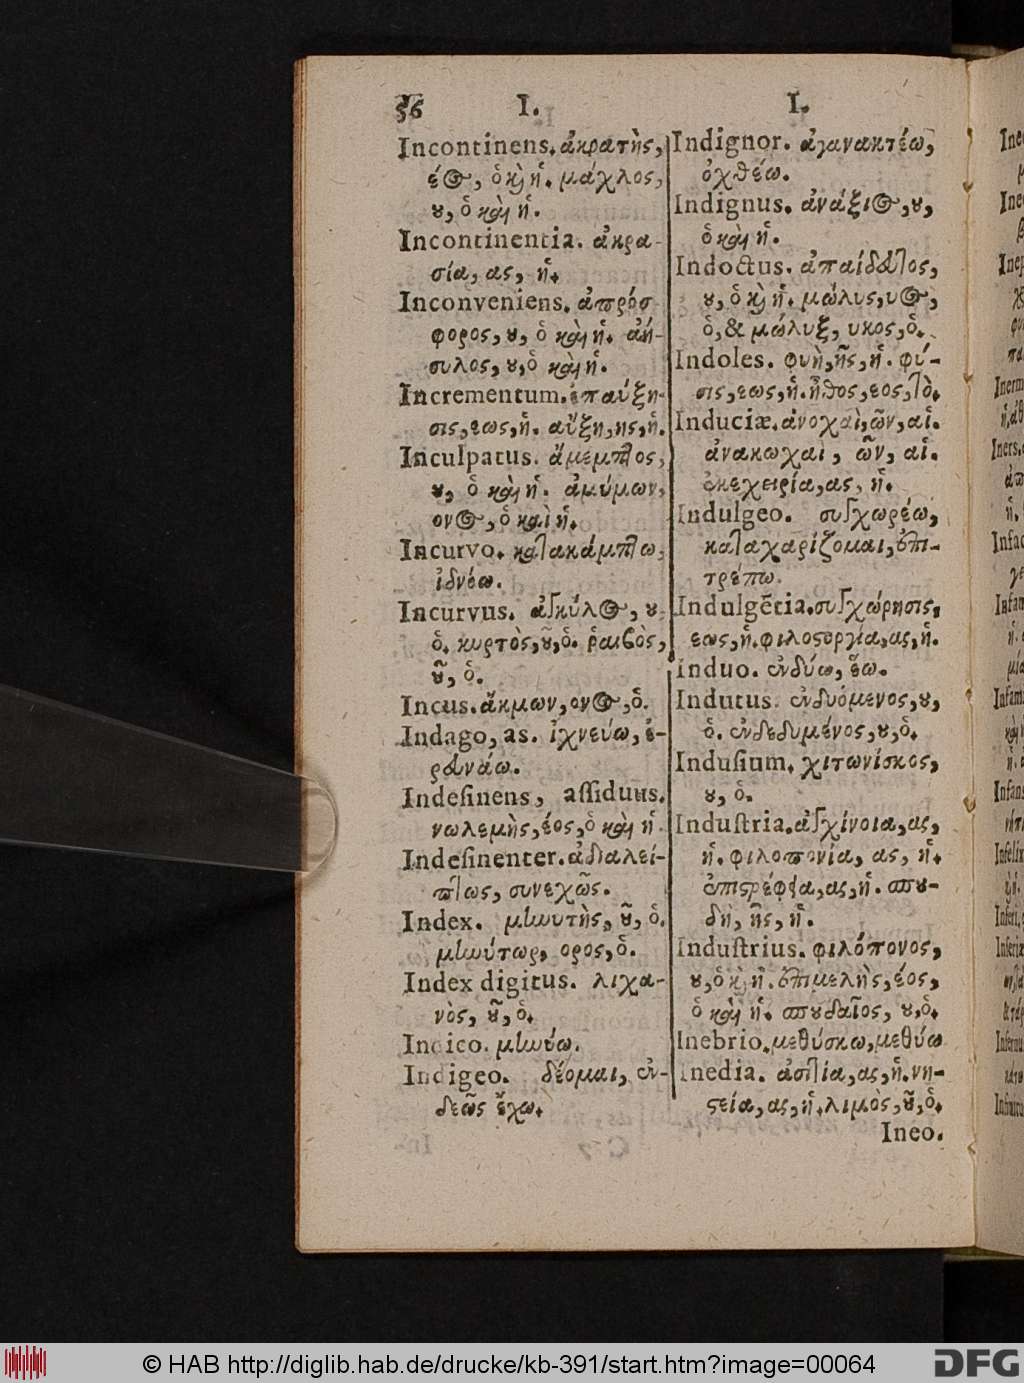 56 I. I.
Incontinens. ἀκρατὴς,
έος, ὁ καὶ ἡ. μάχλος,
ου, ὁ καὶ ἡ.
Incontinentia. ἀκρα-
σία, ας, ἡ.
Inconveniens. ἀπρόσ-
φορος, ου, ὁ καὶ ἡ. ἀή-
συλος, ου, ὁ καὶ ἡ.
Incrementum. ἐπαύξη-
σις, εως, ἡ. αὔξη, ης, ἡ.
Inculpatus. ἄμεμπτος,
ου, ὁ καὶ ἡ. ἀμύμων,
ονος, ὁ καὶ ἡ.
Incurvo. κατακάμπτω,
ἰδνόω.
Incurvus. ἀγκύλος, ου
ὁ. κυρτὸς, οῦ, ὁ. ῥαιβὸς,
οῦ, ὁ.
Incus. ἄκμων, ονος, ὁ.
Indago, as. ἰχνεύω, ἐ-
ρευνάω.
Indesinens, assiduus.
νωλεμὴς, έος, ὁ καὶ ἡ.
Indesinenter. ἀδιαλεί-
πτως, συνεχῶς.
Index. μηνυτὴς, οῦ, ὁ.
μηνύτωρ, ορος, ὁ.
Index digitus. λιχα-
νὸς, οῦ, ὁ.
Indico. μηνύω.
Indigeo. δέομαι, ἐν-
δεῶς ἔχω.
Indignor. ἀγανακτέω,
ὀχθέω.
Indignus. ἀνάξιος, ου,
ὁ καὶ ἡ.
Indoctus. ἀπαίδευτος,
ου, ὁ καὶ ἡ. μώλυς, υος,
ὁ, & μώλυξ, υκος, ὁ.
Indoles. φυὴ, ῆς, ἡ. φύ-
σις, εως, ἡ. ἦθος, εος, τὸ.
Induciæ. ἀνοχαὶ, ῶν, αἱ.
ἀνακωχαὶ, ῶν, αἱ.
ἐκεχειρία, ας, ἡ.
Indulgeo. συγχωρέω,
καταχαρίζομαι, ἐπι-
τρέπω.
Indulgẽtia. συγχώρησις,
εως, ἡ. φιλοστοργία, ας, ἡ.
Induo. ἐνδύω, ἕω.
Indutus. ἐνδυόμενος, ου,
ὁ. ἐνδεδυμένος, ου, ὁ.
Indusium. χιτωνίσκος,
ου, ὁ.
Industria. ἀγχίνοια, ας,
ἡ. φιλοπονία, ας, ἡ.
ἐπιστρέφεια, ας, ἡ. σπου-
δὴ, ῆς, ἡ.
Industrius. φιλόπονος,
ου, ὁ καὶ ἡ. ἐπιμελὴς, έος,
ὁ καὶ ἡ. σπουδαῖος, ου, ὁ.
Inebrio. μεθύσκω, μεθύω
Inedia. ἀσιτία, ας, ἡ. νη-
στεία, ας, ἡ. λιμὸς, οῦ, ὁ.
Ineo.
© HAB http://diglib.hab.de/drucke/kb-391/start.htm?image=00064
DFG